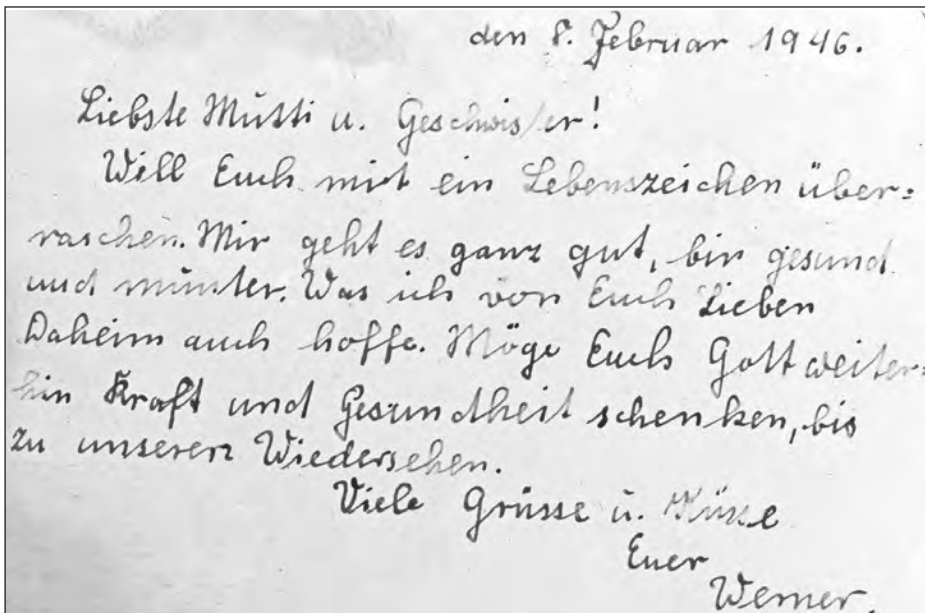 den 8. Februar 1946.
Liebste Mutti u. Geschwister!
Will Euch mit ein Lebenszeichen über=
raschen. Mir geht es ganz gut, bin gesund
und munter. Was ich von Euch Lieben
Daheim auch hoffe. Möge Euch Gott weiter=
hin Kraft und Gesundheit schenken, bis
zu unseren Wiedersehen.
Viele Grüsse u. Küsse
Euer
Werner.